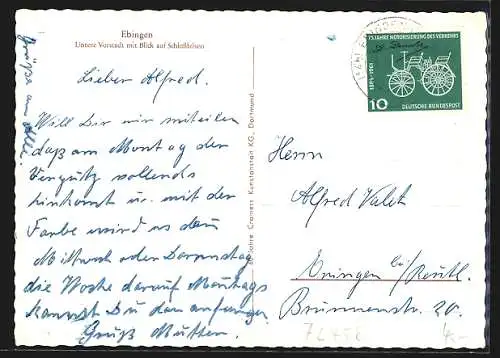 Ebingen
Untere Vorstadt mit Blick auf Schloßfelsen
Grüße an Alle.
Lieber Alfred.
Will Dir nur mitteilen
daß am Montag der
Vergütz vollends
hinkommt u. mit der
Farbe wird es dann
Mittwoch oder Donnerstag
die Woche darauf Montags
kannst Du dann anfangen
Gruß Mutter.
70 Jahre Cramers Kunstanstalt KG., Dortmund
75 JAHRE MOTORISIERUNG DES VERKEHRS
1886-1961
10 DEUTSCHE BUNDESPOST
Herrn
Alfred
bei/Reutl.
Brunnenstr. 20.